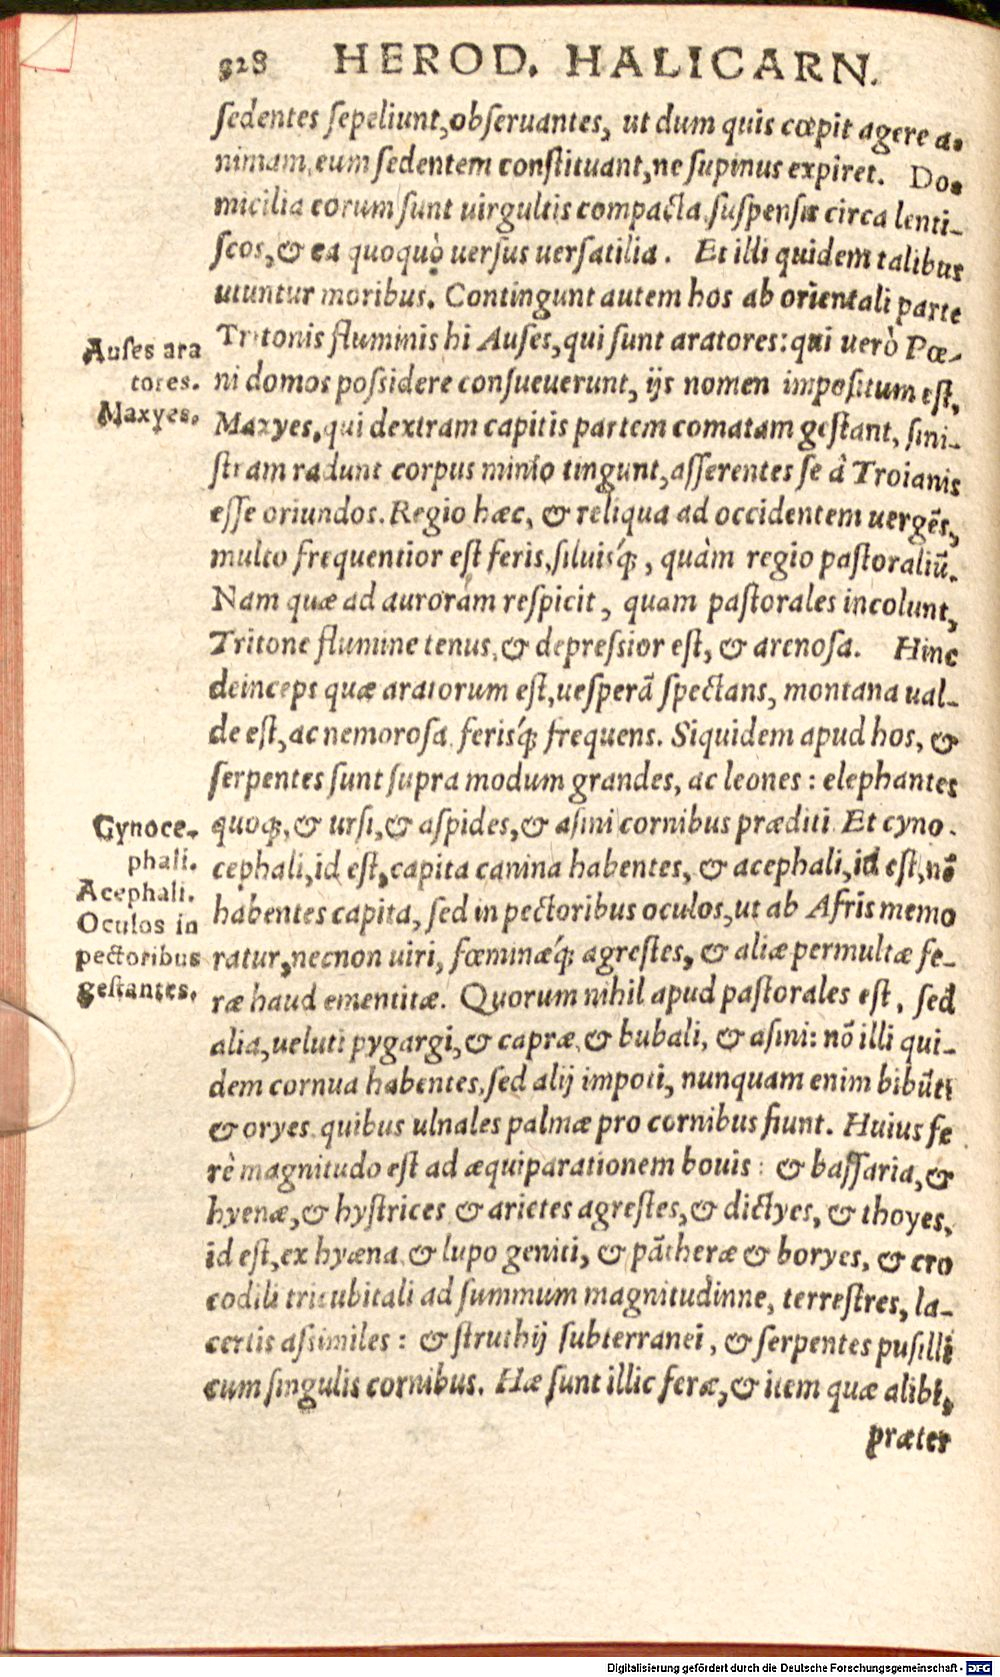 328 HEROD. HALICARN.
ſedentes ſepeliunt, obſeruantes, ut dum quis cœpit agere a-
nimam, eum ſedentem conſtituant, ne ſupinus expiret. Do-
micilia eorum ſunt uirgultis compacta, ſuſpenſa circa lenti-
ſcos, & ea quoquò uerſus uerſatilia. Et illi quidem talibus
utuntur moribus. Contingunt autem hos ab orientali parte
Tritonis fluminis hi Auſes, qui ſunt aratores: qui uerò Pœ-
ni domos poſsidere conſueuerunt, ijs nomen impoſitum eſt,
Maxyes, qui dextram capitis partem comatam geſtant, ſini-
ſtram radunt corpus minio tingunt, aſſerentes ſe à Troianis
eſſe oriundos. Regio hæc, & reliqua ad occidentem uergẽs,
multo frequentior eſt feris, ſiluisq́;, quàm regio paſtoraliũ.
Nam quæ ad auroram reſpicit, quam paſtorales incolunt,
Tritone flumine tenus, & depreſsior eſt, & arenoſa. Hinc
deinceps quæ aratorum eſt, ueſperã ſpectans, montana ual-
de eſt, ac nemoroſa, ferisq́; frequens. Siquidem apud hos, &
ſerpentes ſunt ſupra modum grandes, ac leones: elephantes
quoq;, & urſi, & aſpides, & aſini cornibus præditi Et cyno-
cephali, id eſt, capita canina habentes, & acephali, id eſt, nõ
habentes capita, ſed in pectoribus oculos, ut ab Afris memo
ratur, necnon uiri, fœminæq́; agreſtes, & aliæ permultæ fe-
ræ haud ementitæ. Quorum nihil apud paſtorales eſt, ſed
alia, ueluti pygargi, & capræ, & bubali, & aſini: nõ illi qui-
dem cornua habentes, ſed alij impoti, nunquam enim bibũt:
& oryes, quibus ulnales palmæ pro cornibus fiunt. Huius fe
rè magnitudo eſt ad æquiparationem bouis: & baſſaria, &
hyenæ, & hyſtrices & arietes agreſtes, & dictyes, & thoyes,
id eſt, ex hyæna & lupo geniti, & pãtheræ & boryes, & cro
codili tricubitali ad ſummum magnitudinne, terreſtres, la-
certis aſsimiles: & ſtruthij ſubterranei, & ſerpentes puſilli
cum ſingulis cornibus. Hæ ſunt illic feræ, & item quæ alibi,
præter
Auſes ara
tores.
Maxyes.
Cynoce-
phali.
Acephali.
Oculos in
pectoribus
geſtantes.
Digitalisierung gefördert durch die Deutsche Forschungsgemeinschaft - DFG